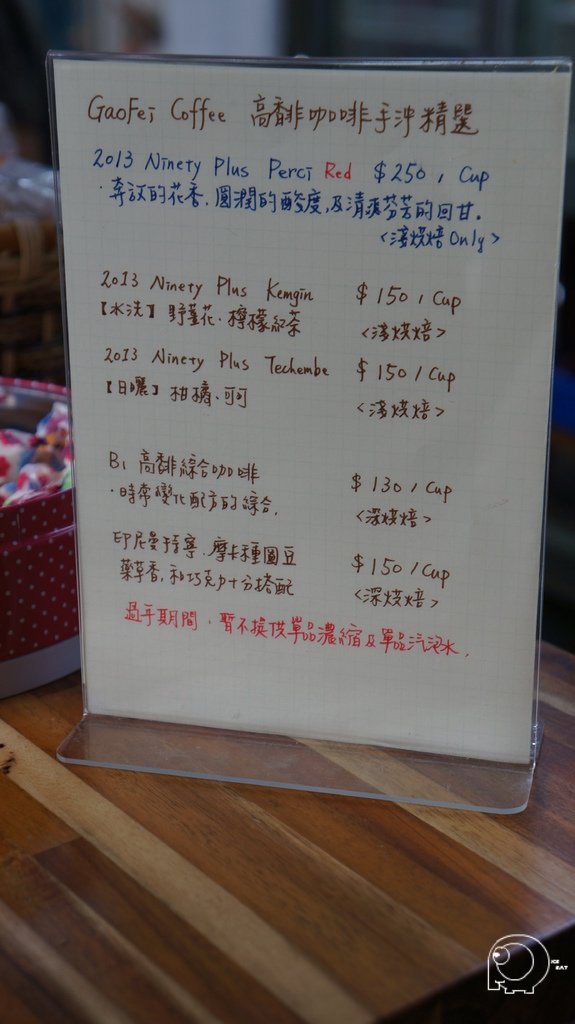 GaoFei Coffee 高翡咖啡手沖精選
2013 Ninety Plus Perci Red $250 / Cup
·奔放的花香、圓潤的酸度,及清爽芬芳的回甘。
<淺烘焙 Only>
2013 Ninety Plus Kemgin $150 / Cup
【水洗】野薑花、檸檬紅茶 <淺烘焙>
2013 Ninety Plus Techembe $150 / Cup
【日曬】柑橘、可可 <淺烘焙>
B1 高翡綜合咖啡 $130 / Cup
·時常變化配方的綜合. <深烘焙>
印尼曼特寧、摩卡種圓豆 $150 / Cup
藥草香,和巧克力十分搭配 <深烘焙>
過年期間、暫不提供單品濃縮及單品汽泡水.